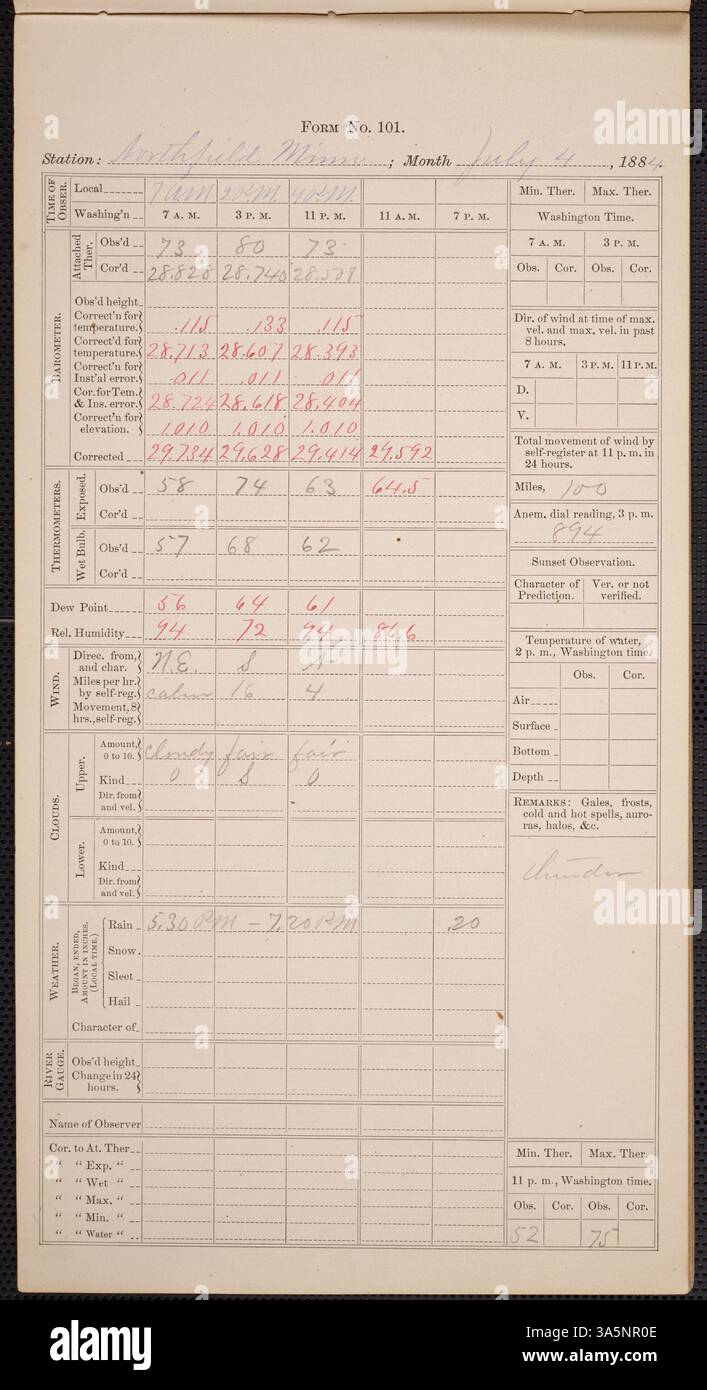 Form No. 101.
Station: Northfield Minn ; Month July 4 , 1884
TIME OF OBSER. Local 7 AM 2 P.M. 9 P.M.
Washing'n 7 A. M. 3 P. M. 11 P. M. 11 A. M. 7 P. M.
BAROMETER.
Attached Ther. Obs'd 73 80 73
Cor'd 28.828 28.740 28.508
Obs'd height
Correct'n for temperature. .115 .133 .115
Correct'd for temperature. 28.713 28.607 28.393
Correct'n for Inst'al error. .011 .011 .011
Cor. for Tem. & Ins. error. 28.724 28.618 28.404
Correct'n for elevation. 1.010 1.010 1.010
Corrected 29.734 29.628 29.414 29.592
THERMOMETERS.
Exposed. Obs'd 58 74 63 64.5
Cor'd
Wet Bulb. Obs'd 57 68 62
Cor'd
Dew Point 56 64 61
Rel. Humidity 94 72 94 86.6
WIND.
Direc. from, and char. N.E. S
Miles per hr. by self-reg. calm 16 4
Movement, 8 hrs., self-reg.
CLOUDS.
Upper. Amount, 0 to 10. cloudy fair fair
Kind 0 S 0
Dir. from and vel.
Lower. Amount, 0 to 10.
Kind
Dir. from and vel.
WEATHER.
Began, ended, amount in inches. (Local time.)
Rain 5.30 PM - 7.20 PM .20
Snow
Sleet
Hail
Character of
RIVER GAUGE. Obs'd height
Change in 24 hours.
Name of Observer
Cor. to At. Ther
" " Exp. "
" " Wet "
" " Max. "
" " Min. "
" " Water "
Min. Ther. Max. Ther.
Washington Time.
7 A. M. 3 P. M.
Obs. Cor. Obs. Cor.
Dir. of wind at time of max. vel. and max. vel. in past 8 hours.
7 A. M. 3 P. M. 11 P. M.
D.
V.
Total movement of wind by self-register at 11 p. m. in 24 hours.
Miles, 100
Anem. dial reading, 3 p. m.
894
Sunset Observation.
Character of Prediction. Ver. or not verified.
Temperature of water, 2 p. m., Washington time.
Obs. Cor.
Air
Surface
Bottom
Depth
Remarks: Gales, frosts, cold and hot spells, auroras, halos, &c.
thunder
Min. Ther. Max. Ther.
11 p. m., Washington time.
Obs. Cor. Obs. Cor.
52 75
alamy
Image ID: 3A5NR0E
www.alamy.com